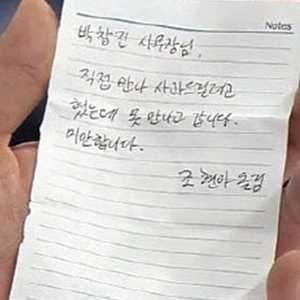 Notes
박창진 사무장님,
직접 만나 사과드릴려고
했는데 못 만나고 갑니다.
미안합니다.
조현아 올림